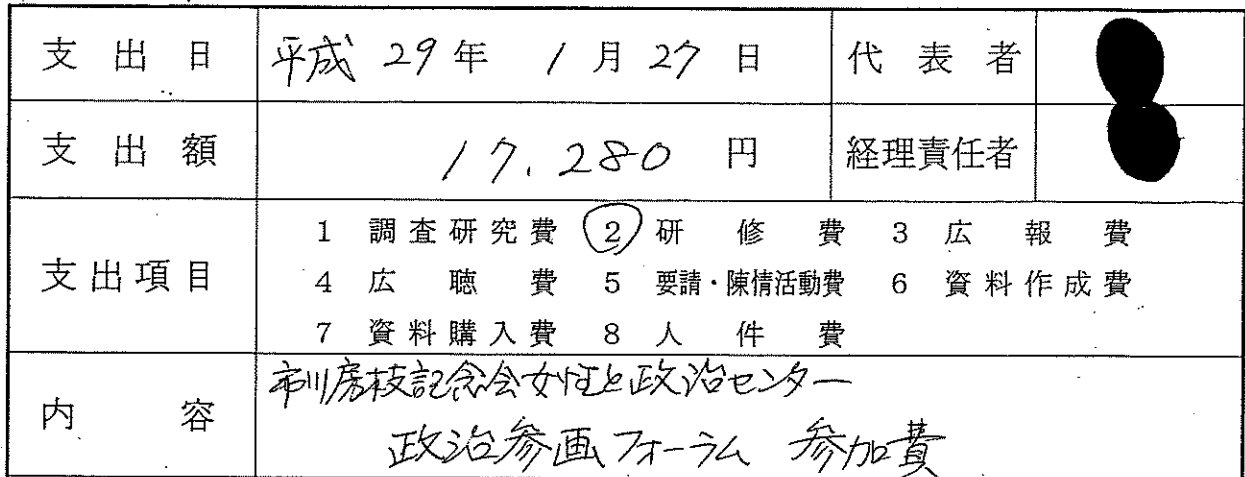 支出日 平成 29年 1月 27日 代表者
支出額 17.280 円 経理責任者
支出項目 1 調査研究費 2 研修費 3 広報費
4 広聴費 5 要請・陳情活動費 6 資料作成費
7 資料購入費 8 人件費
内容 市川房枝記念会女性と政治センター
政治参画フォーラム 参加費